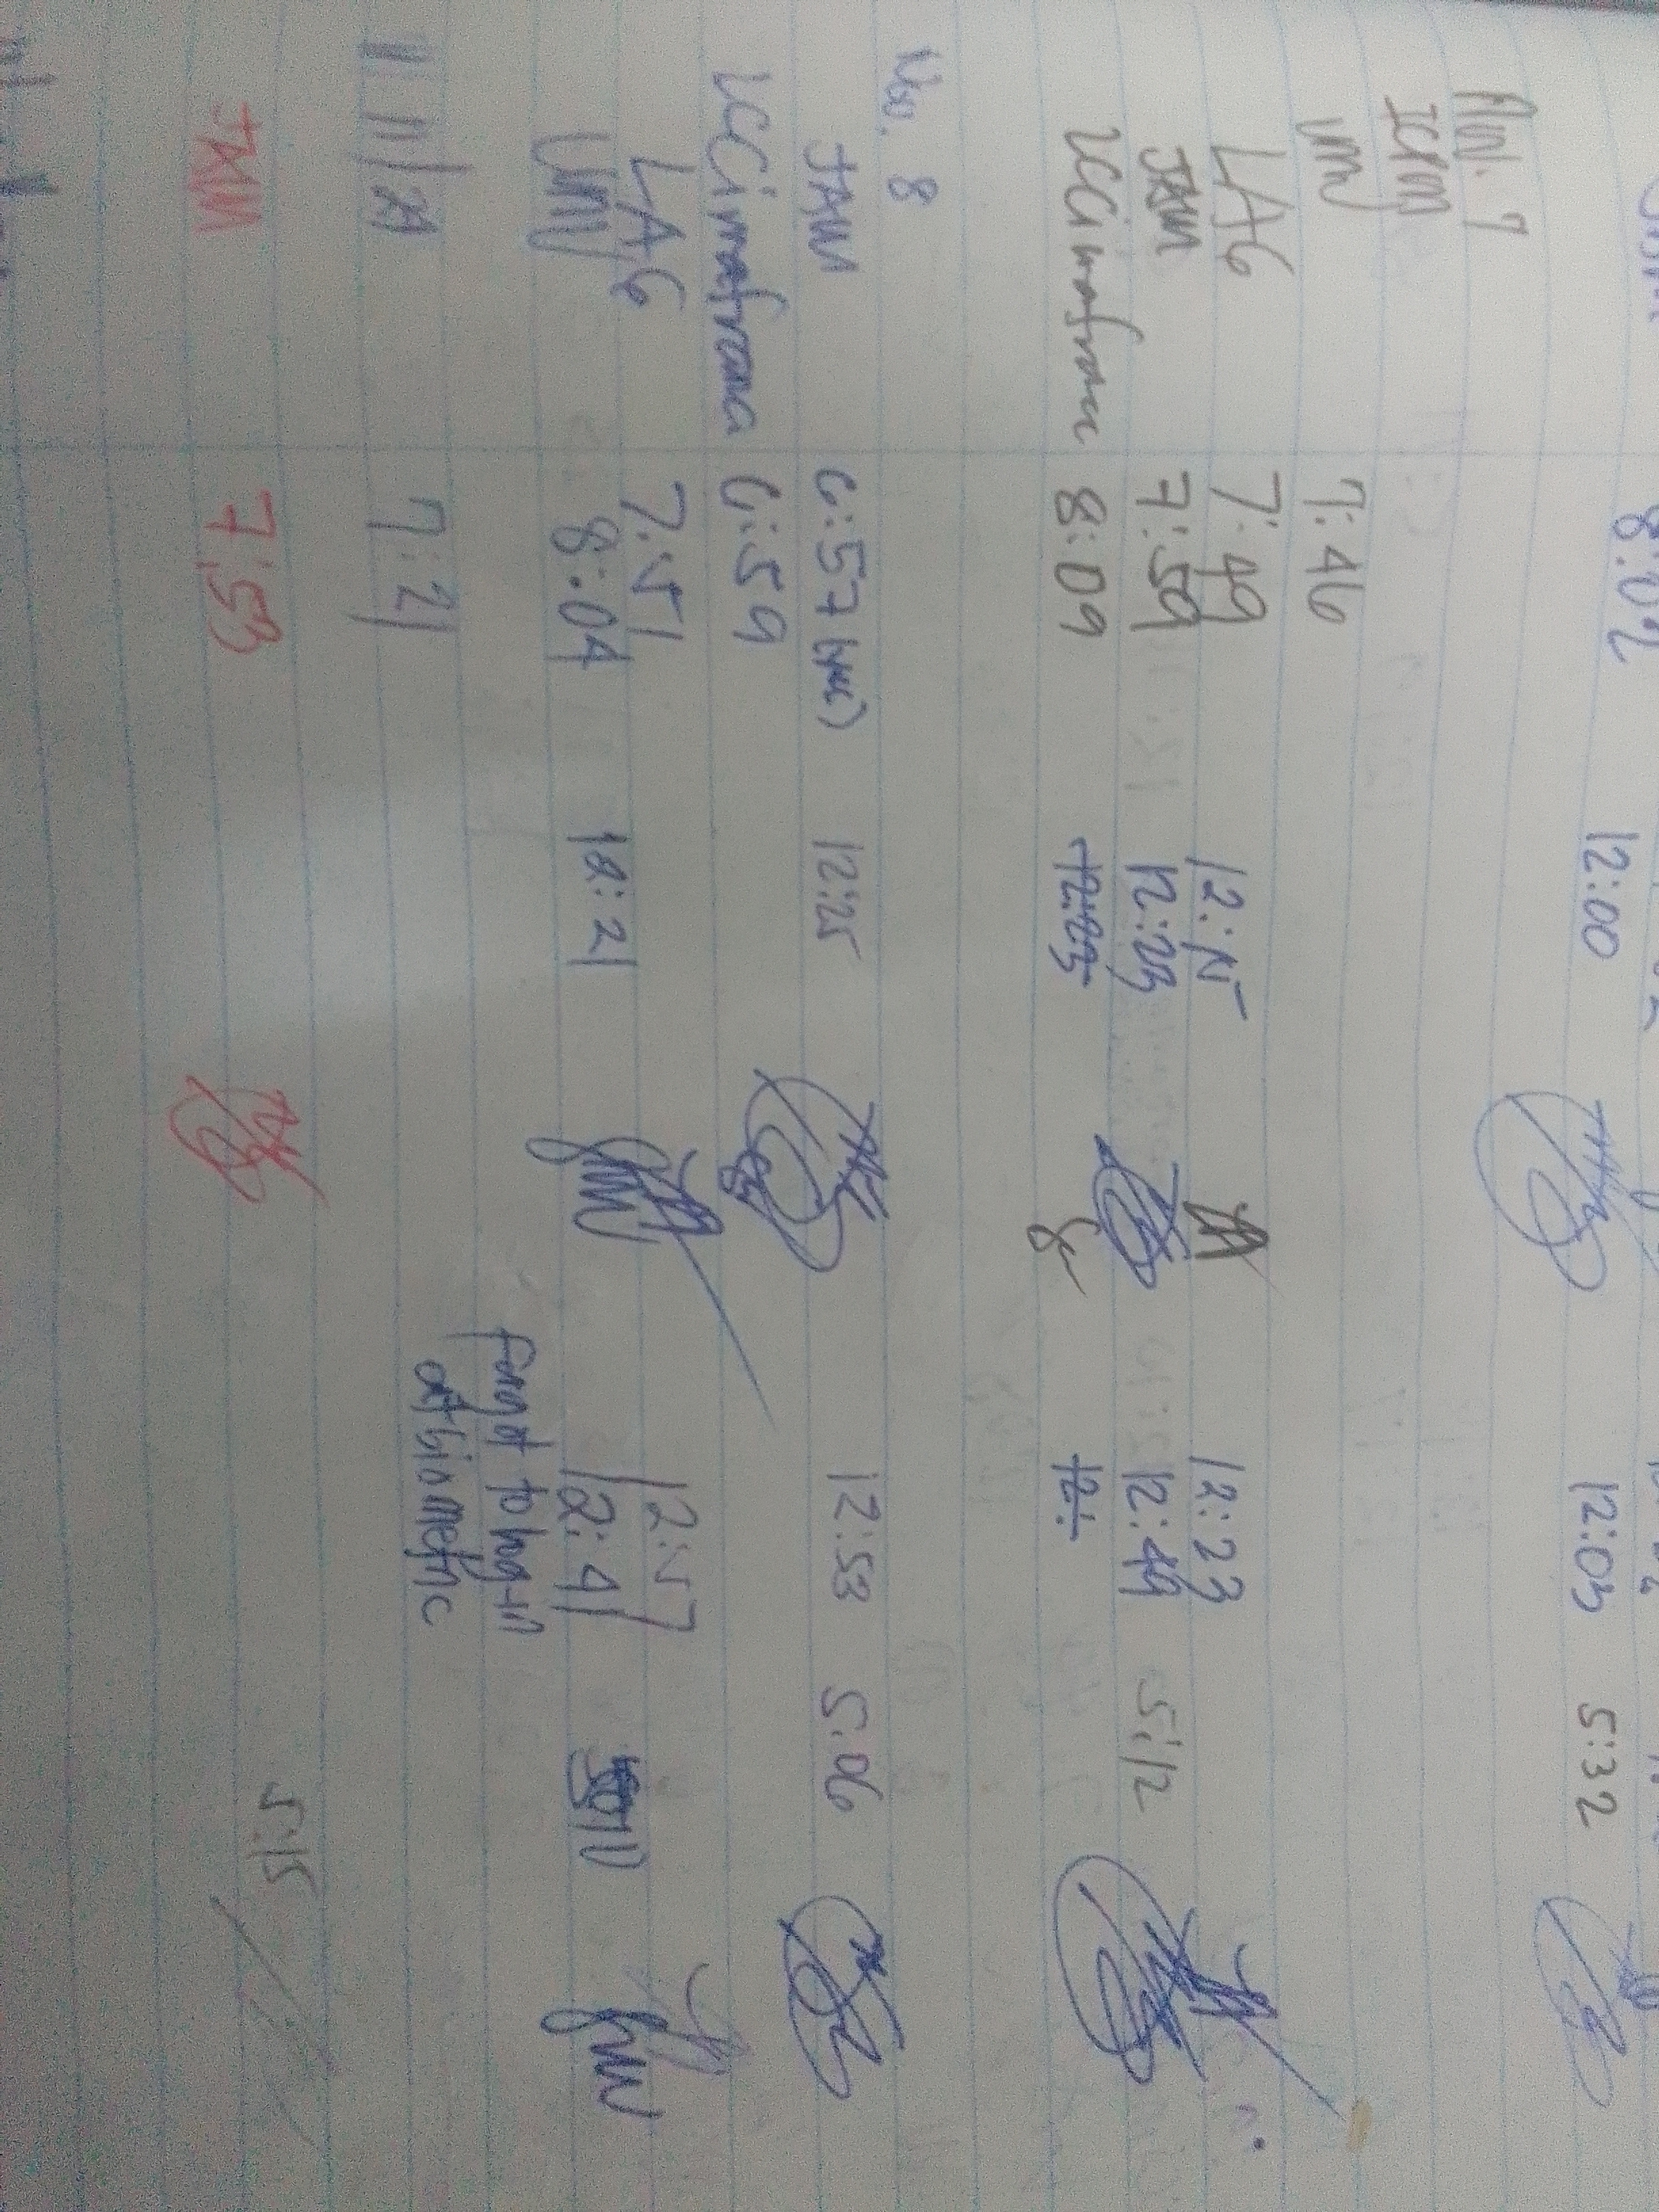 8:02 12:00 12:03 5:32
Nov. 7
ICPM
VMV 7:46
LAG 7:49 12:15 12:23
JAM 7:59 12:23 12:49 5:12
LCCimafranca 8:09 12:23 12:
Nov. 8
JAM 6:57 12:25 12:53 5:06
LCCimafranca 6:59
LAG 7:51 12:57
VMV 8:04 12:21 12:41
Forgot to log-in
at biometric
7:21
JAM 7:53 5:15